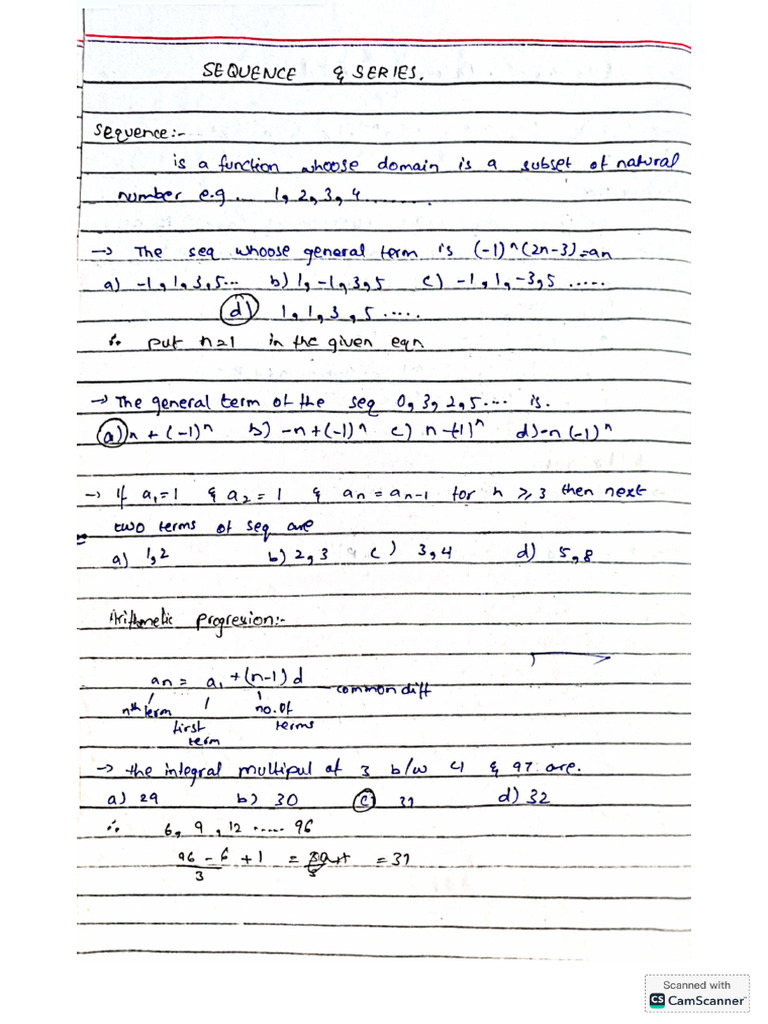 SEQUENCE & SERIES.
Sequence:-
is a function whoose domain is a subset of natural
number e.g ... 1, 2, 3, 4 ........
→ The seq whoose general term is (-1)^n (2n-3)=an
a) -1, 1, 3, 5... b) 1, -1, 3, 5 c) -1, 1, -3, 5 .....
d) 1, 1, 3, 5 .....
∴ put n=1 in the given eqn
→ The general term of the seq 0, 3, 2, 5.... is.
a) n + (-1)^n b) -n + (-1)^n c) n-(1)^n d) -n (-1)^n
→ If a₁=1 & a₂=1 & an = an-1 for n ≥ 3 then next
two terms of seq are
a) 1,2 b) 2,3 c) 3,4 d) 5,8
Arithmetic progresion:-
an = a₁ + (n-1) d common diff
nth term no. of
first terms
term
→ the integral multipul of 3 b/w 4 & 97 are.
a) 29 b) 30 c) 31 d) 32
∴ 6, 9, 12 ..... 96
96 - 6 + 1 = = 31
3
Scanned with
CS CamScanner